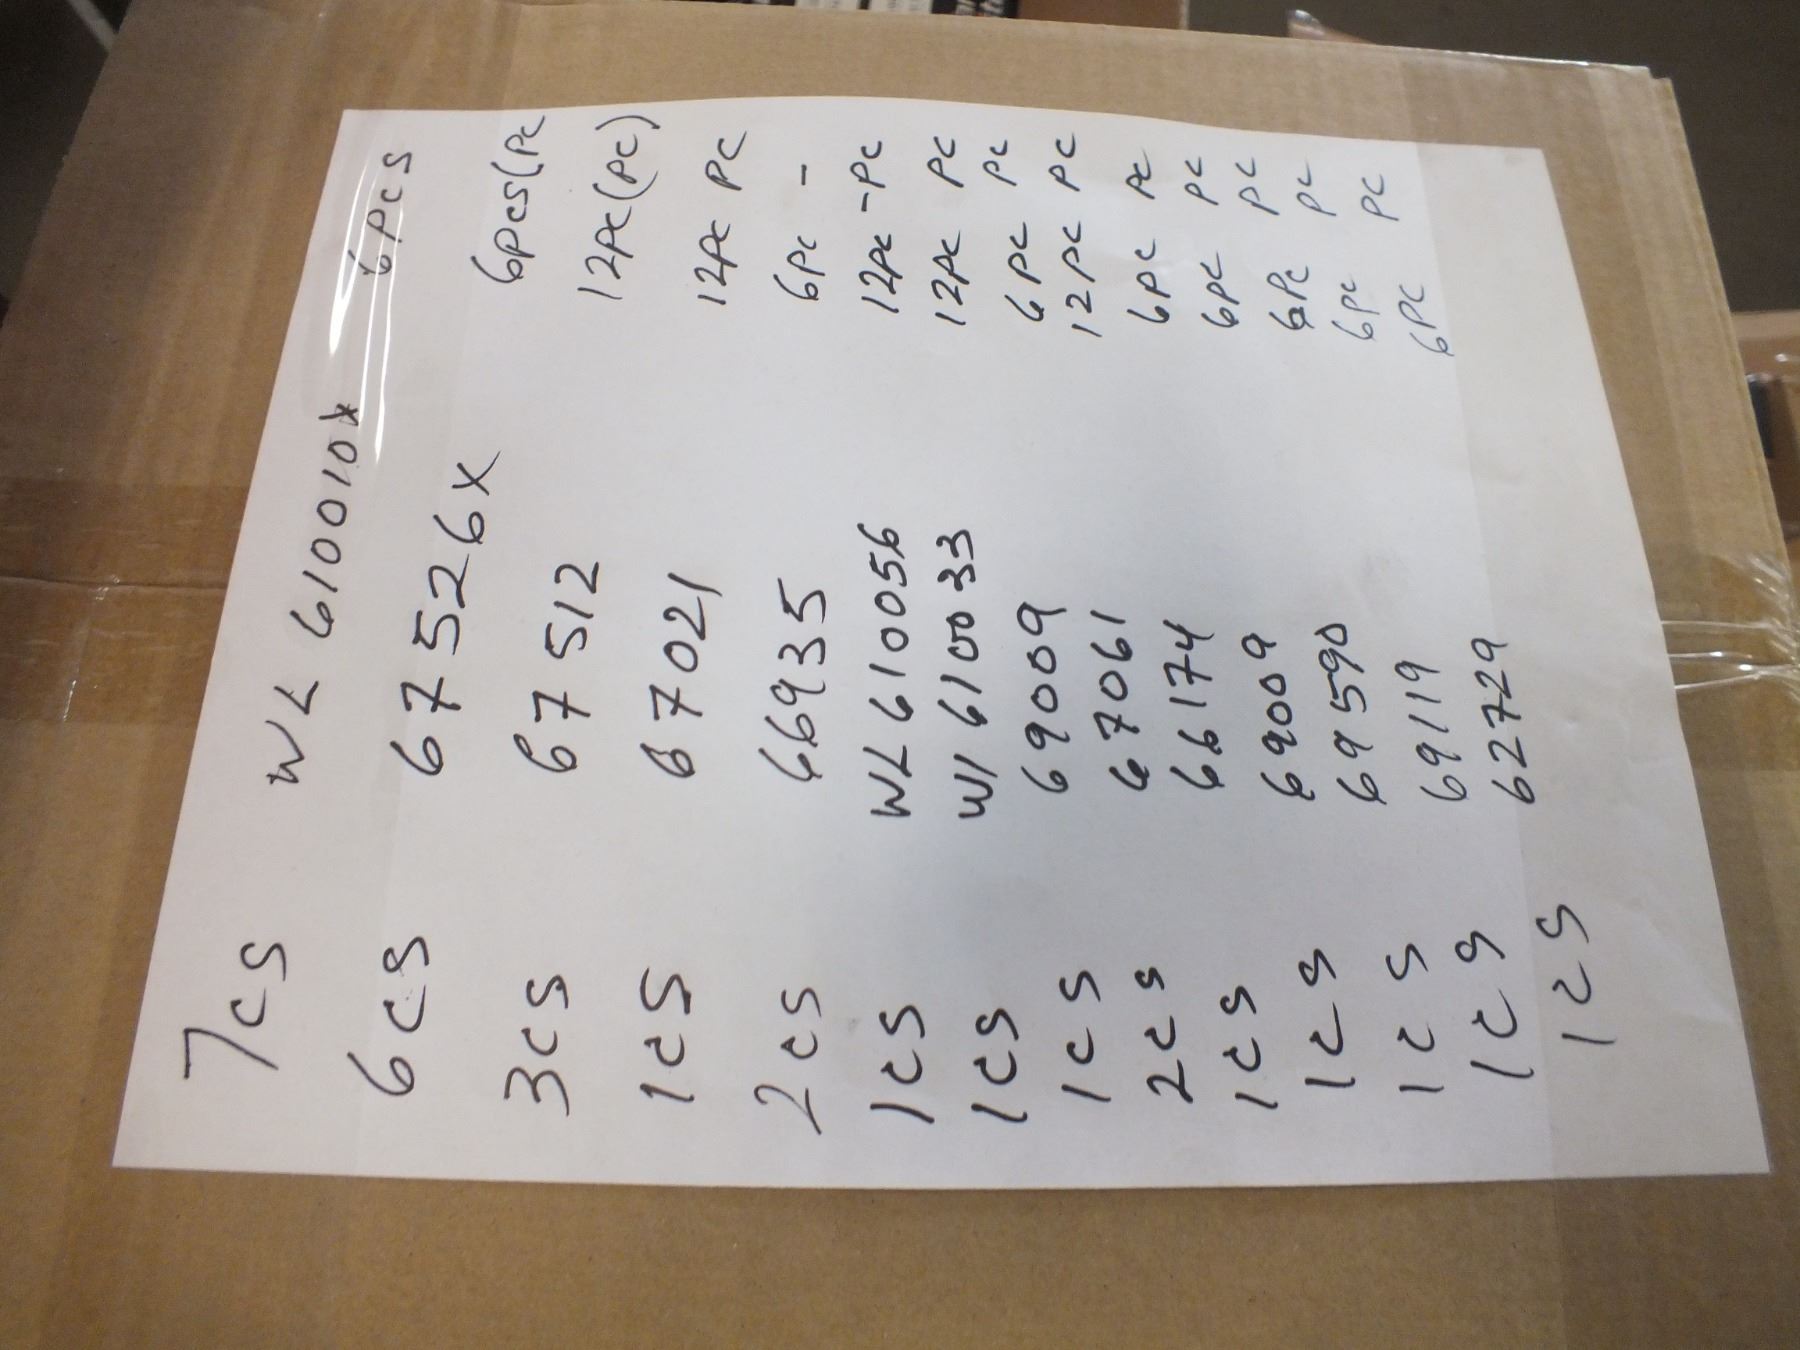 7cs WL 610010x 6Pcs
6cs 67526X 6Pcs(PC
3cs 67512 12PC(PC)
1cs 67021 12PC PC
2cs 66935 6PC -
1cs WL610056 12PC -PC
1cs WL610033 12PC PC
1cs 69009 6PC PC
2cs 67061 12PC PC
1cs 66174 6PC PC
1cs 69009 6PC PC
1cs 69590 6PC PC
1cs 69119 6PC PC
1cs 62729 6PC PC